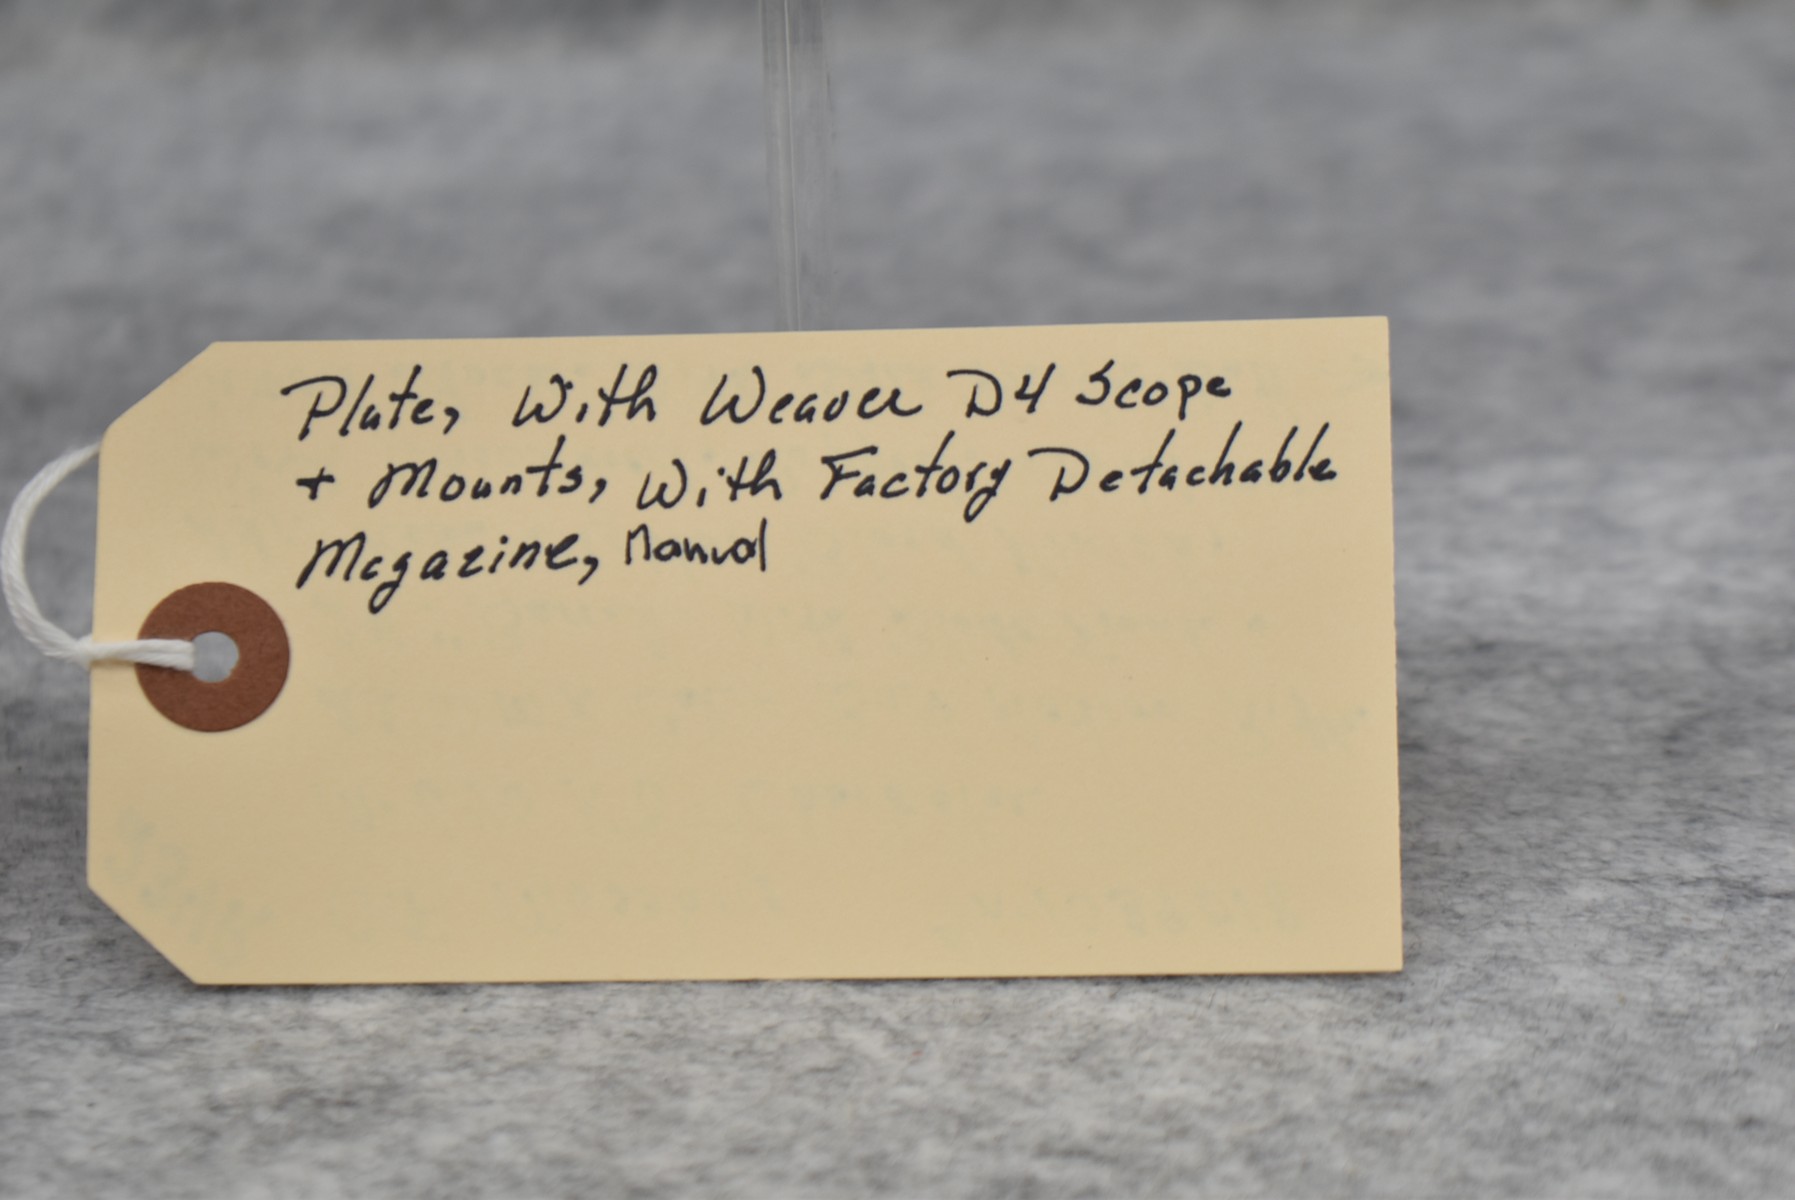 Plate, With Weaver D4 Scope
+ Mounts, With Factory Detachable
Magazine, Manual